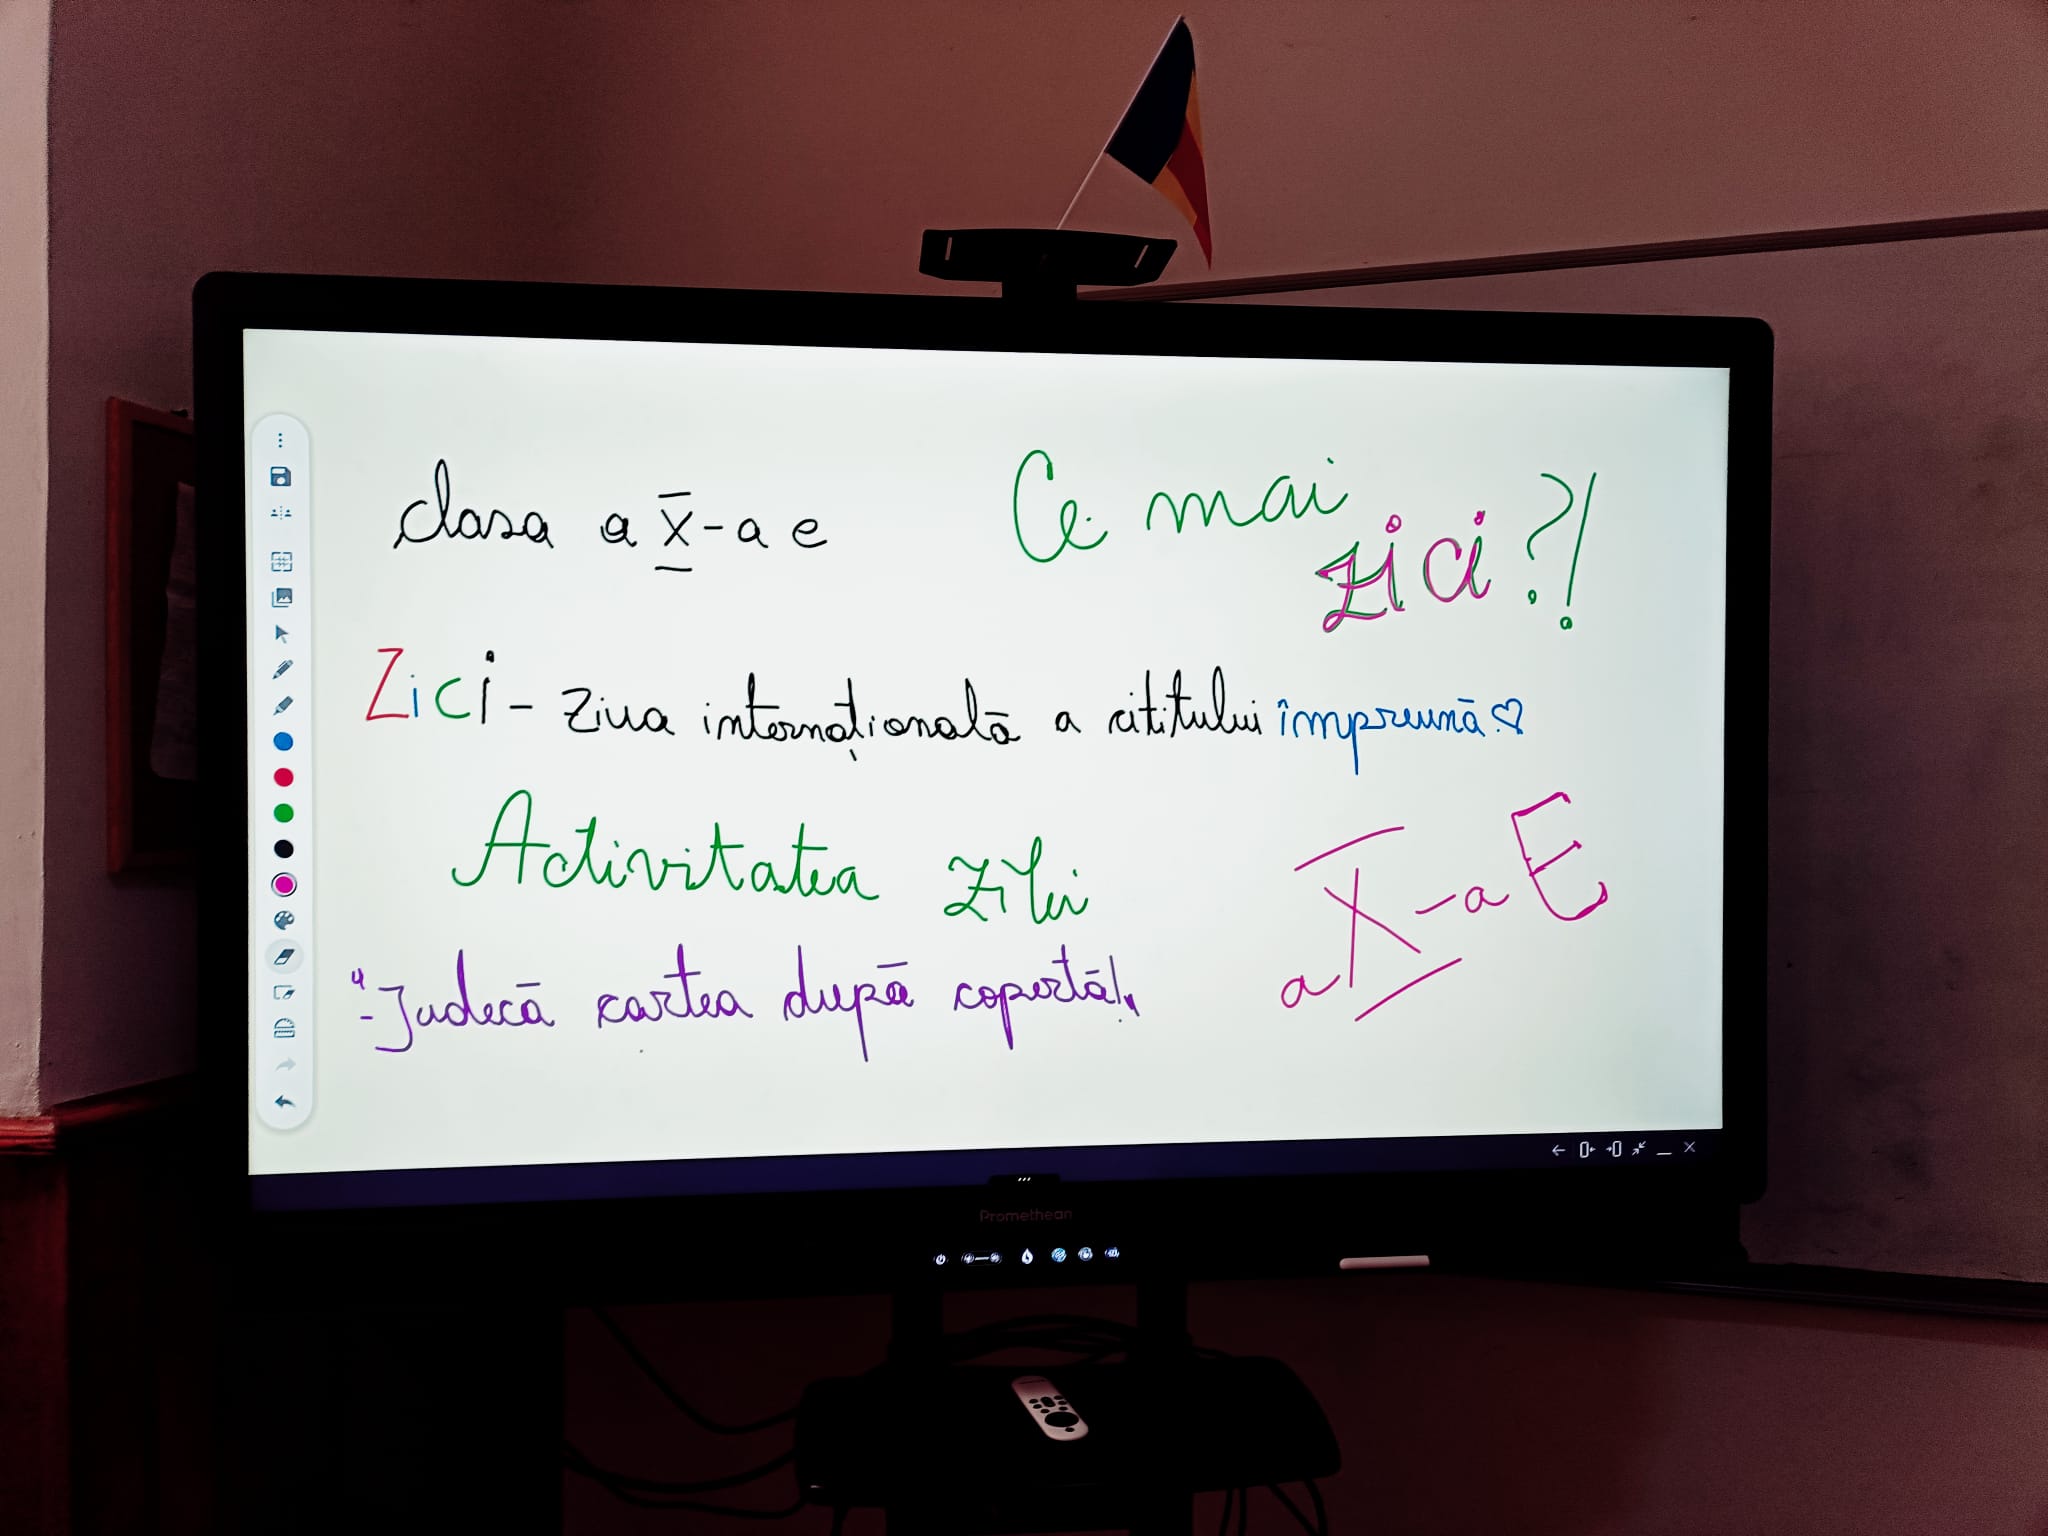 clasa a X-a e
Ce mai
zici?!
Zici - ziua internațională a cititului împreună ♡
Activitatea zilei
a X-a E
"-Judecă cartea după copertă!"
Promethean